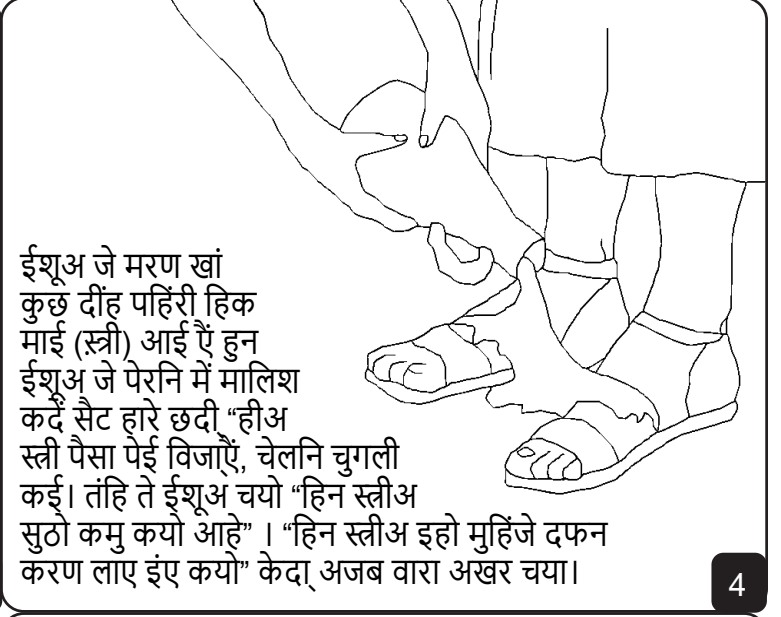 ईशूअ जे मरण खां
कुछ दींह पहिंरी हिक
माई (स़्त्री) आई ऐं हुन
ईशूअ जे पेरनि में मालिश
कदें सैट हारे छदी “हीअ
स्त्री पैसा पेई विजा॒ऐं, चेलनि चुगली
कई। तंहि ते ईशूअ चयो “हिन स्त्रीअ
सुठो कमु कयो आहे” । “हिन स्त्रीअ इहो मुहिंजे दफन
करण लाए इंए कयो” केदा॒ अजब वारा अखर चया।
4